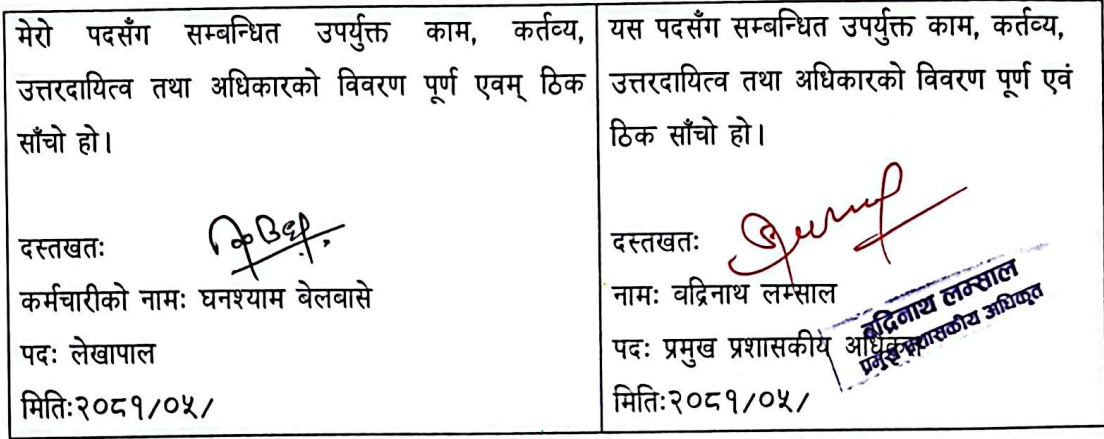 मेरो पदसँग सम्बन्धित उपर्युक्त काम, कर्तव्य,
उत्तरदायित्व तथा अधिकारको विवरण पूर्ण एवम् ठिक
साँचो हो।
दस्तखतः
कर्मचारीको नामः घनश्याम बेलवासे
पदः लेखापाल
मितिः२०८१/०५/
यस पदसँग सम्बन्धित उपर्युक्त काम, कर्तव्य,
उत्तरदायित्व तथा अधिकारको विवरण पूर्ण एवं
ठिक साँचो हो।
दस्तखतः
नामः वद्रिनाथ लम्साल
पदः प्रमुख प्रशासकीय अधिकृत
मितिः२०८१/०५/
बद्रिनाथ लम्साल
प्रमुख प्रशासकीय अधिकृत